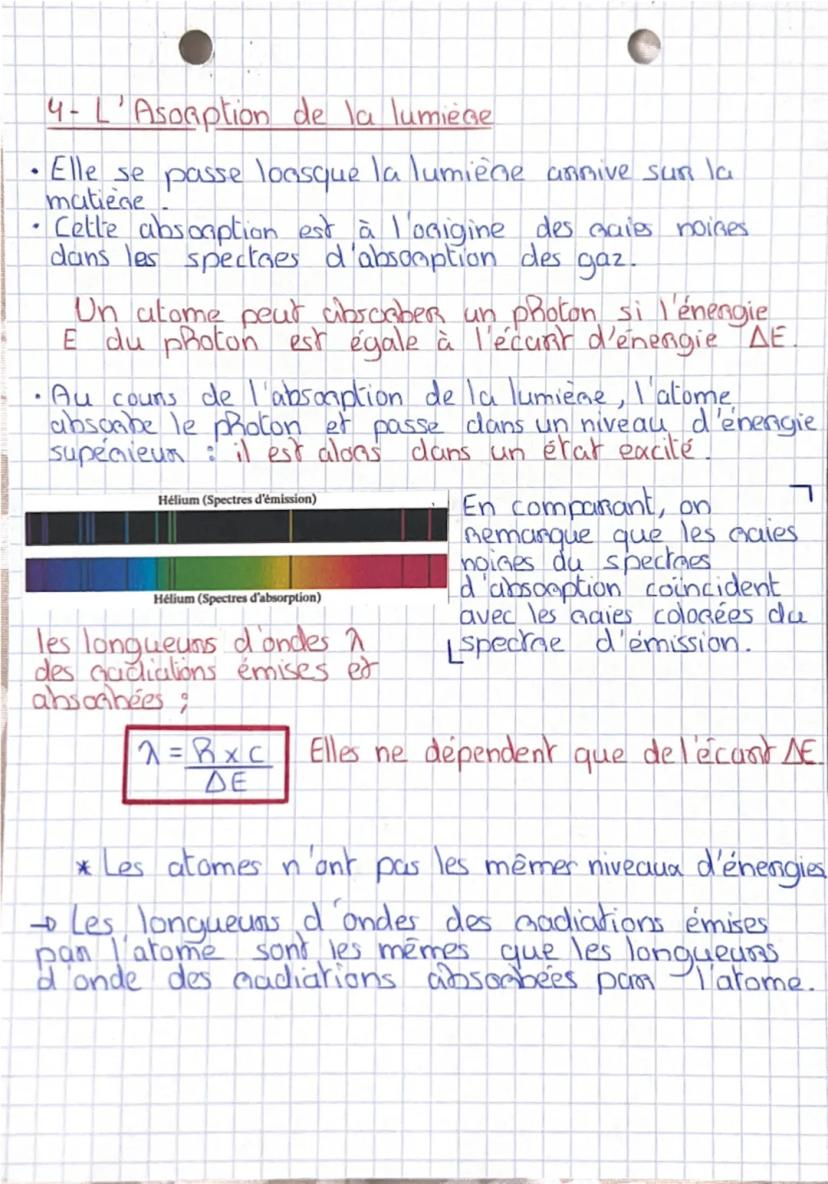 4- L'Asorption de la lumière
• Elle se passe lorsque la lumière arrive sur la
matière.
• Cette absorption est à l'origine des raies noires
dans les spectres d'absorption des gaz.
Un atome peut absorber un photon si l'énergie
E du photon est égale à l'écart d'énergie ΔE.
• Au cours de l'absorption de la lumière, l'atome
absorbe le photon et passe dans un niveau d'énergie
supérieur : il est alors dans un état excité.
Hélium (Spectres d'émission)
Hélium (Spectres d'absorption)
En comparant, on
remarque que les raies
noires du spectres
d'absorption coïncident
avec les raies colorées du
spectre d'émission.
les longueurs d'ondes λ
des radiations émises et
absorbées :
λ = h x c
ΔE
Elles ne dépendent que de l'écart ΔE.
* Les atomes n'ont pas les mêmer niveaux d'énergies
→ Les longueurs d'ondes des radiations émises
par l'atome sont les mêmes que les longueurs
d'onde des radiations absorbées par l'atome.